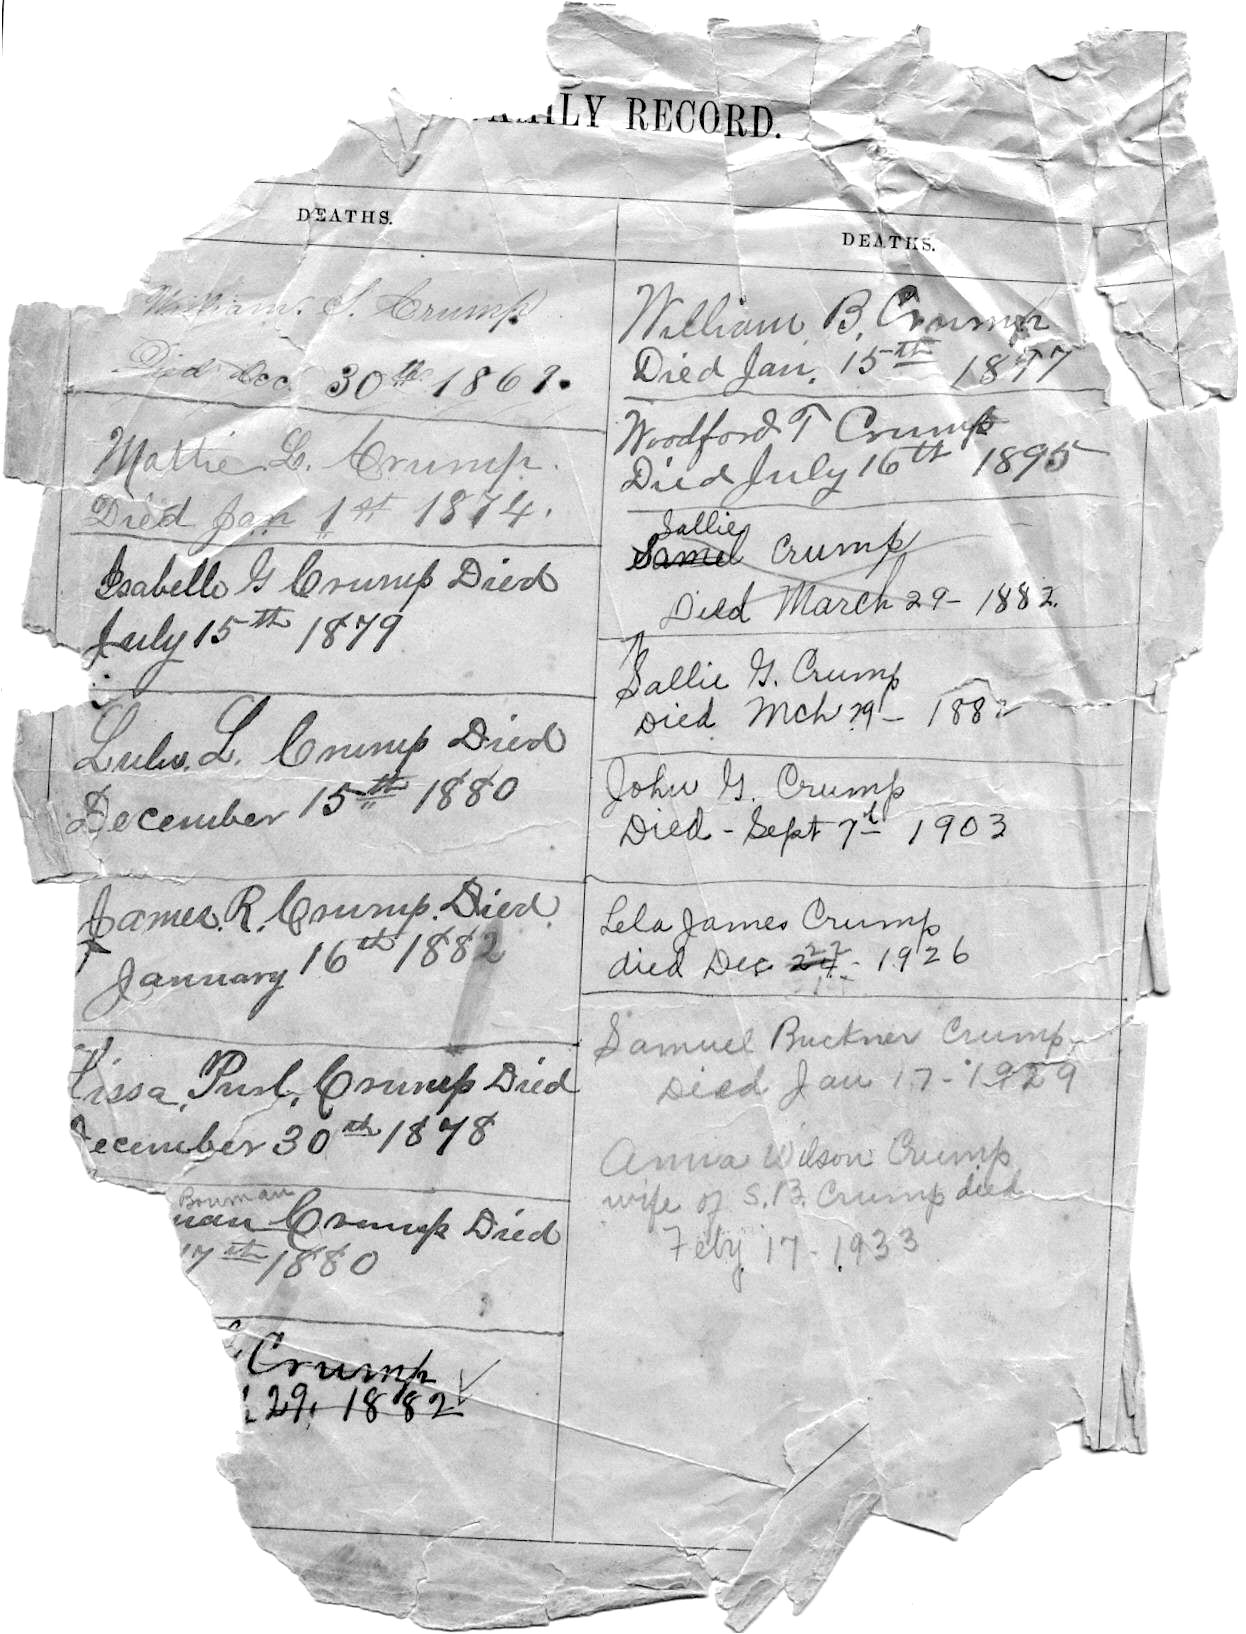 FAMILY RECORD.
DEATHS.
William. S. Crump
Died Dec 30th 1869.
Mattie L. Crump.
Died Jan 1st 1874.
Isabella G Crump Died
July 15th 1879
Lulu. L. Crump Died
December 15th 1880
James. R. Crump. Died
January 16th 1882
issa, Crump Died
ecember 30th 1878
Bowman
man Crump Died
17th 1880
Crump
29, 1882
DEATHS.
William. B. Crump
Died Jan. 15th 1877
Woodford T Crump
Died July 16th 1895
Sallie
Samel Crump
Died March 29 - 1882.
Sallie G. Crump
Died Mch 29 - 1882
John G. Crump
Died - Sept 7th 1903
Lela James Crump
died Dec 22 - 1926
Samuel Buckner Crump
Died Jan 17 - 1929
Anna Wilson Crump
wife of S.B. Crump died
Feby 17 - 1933